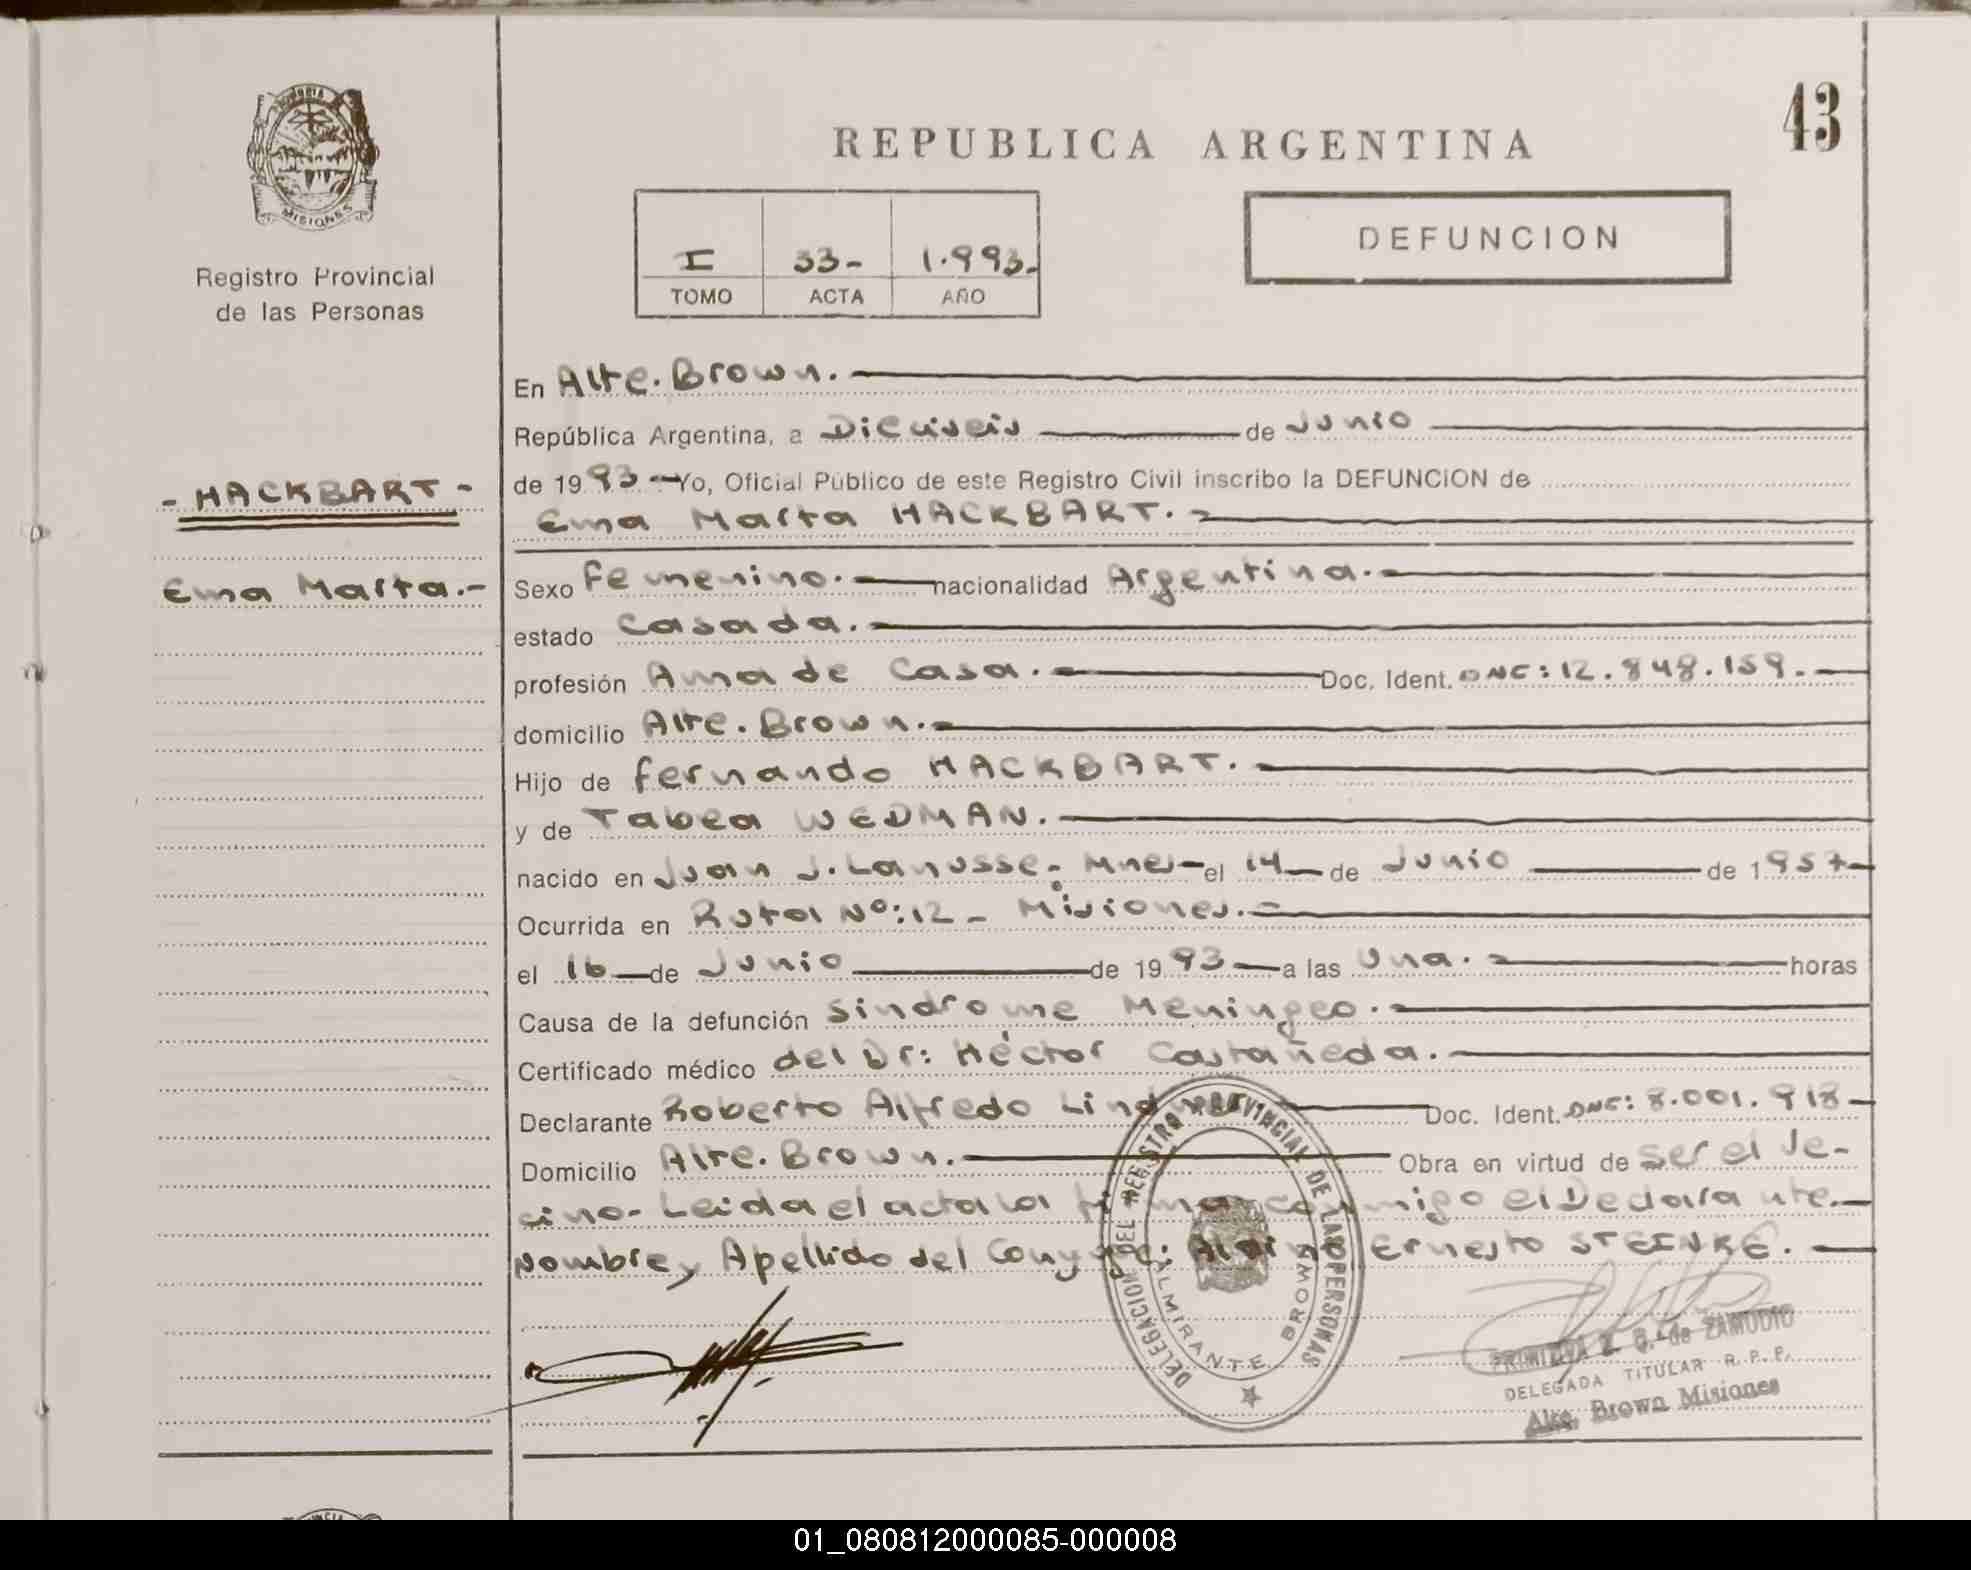 MISIONES
Registro Provincial
de las Personas
- HACKBART -
Ema Marta.-
43
REPUBLICA ARGENTINA
I 33- 1.993.
TOMO ACTA AÑO
DEFUNCION
En Alte. Brown.
República Argentina, a Dieciseis de Junio
de 1993 - Yo, Oficial Público de este Registro Civil inscribo la DEFUNCION de
Ema Marta HACKBART.
Sexo femenino. nacionalidad Argentina.
estado Casada.
profesión Ama de Casa. Doc. Ident. DNC: 12.848.159.
domicilio Alte. Brown.
Hijo de fernando HACKBART.
y de Tabea WEDMAN.
nacido en Juan J. Lanusse. Mnes - el 14 de Junio de 1957
Ocurrida en Ruta Nº: 12 - Misiones.
el 16 de Junio de 1993 a las una. horas
Causa de la defunción Sindrome Meningeo.
Certificado médico del Dr: Héctor Castañeda.
Declarante Roberto Alfredo Doc. Ident. DNC: 8.001.918
Domicilio Alte. Brown. Obra en virtud de ser el Ve-
cino- Leida el acta la firma conmigo el Declarante.
Nombre y Apellido del Conyuge: Ernesto STEINKE.
DELEGACION DEL REGISTRO PROVINCIAL DE LAS PERSONAS
ALMIRANTE BROWN
de ZAMUDIO
DELEGADA TITULAR R. P. P.
Alte. Brown Misiones
01_080812000085-000008